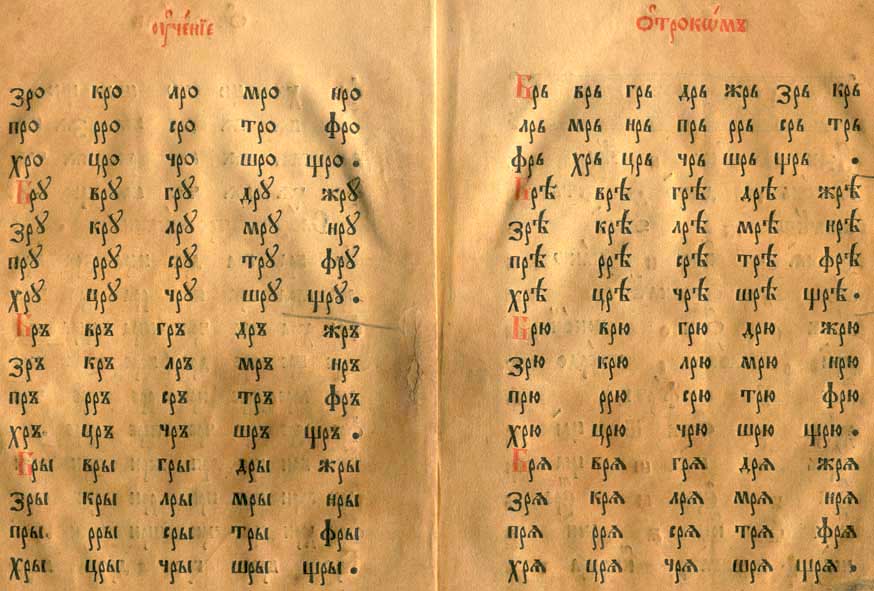 ᲂу҆че́нїе
зро кро лро мро нро
про рро сро тро фро
хро цро чро шро щро .
Брꙋ врꙋ грꙋ дрꙋ жрꙋ
зрꙋ крꙋ лрꙋ мрꙋ нрꙋ
прꙋ ррꙋ срꙋ трꙋ фрꙋ
хрꙋ црꙋ чрꙋ шрꙋ щрꙋ .
Бръ връ гръ дръ жръ
зръ кръ лръ мръ нръ
пръ рръ сръ тръ фръ
хръ цръ чръ шръ щръ .
Бры вры гры дры жры
зры кры лры мры нры
пры рры сры тры фры
хры цры чры шры щры .
Ѻ҆трокѡ́мъ
Брь врь грь дрь жрь зрь крь
лрь мрь нрь прь ррь срь трь
фрь хрь црь чрь шрь щрь .
Брѣ врѣ грѣ дрѣ жрѣ
зрѣ крѣ лрѣ мрѣ нрѣ
прѣ ррѣ срѣ трѣ фрѣ
хрѣ црѣ чрѣ шрѣ щрѣ .
Брю врю грю дрю жрю
зрю крю лрю мрю нрю
прю ррю срю трю фрю
хрю црю чрю шрю щрю .
Брѧ врѧ грѧ дрѧ жрѧ
зрѧ крѧ лрѧ мрѧ нрѧ
прѧ ррѧ срѧ трѧ фрѧ
хрѧ црѧ чрѧ шрѧ щрѧ .